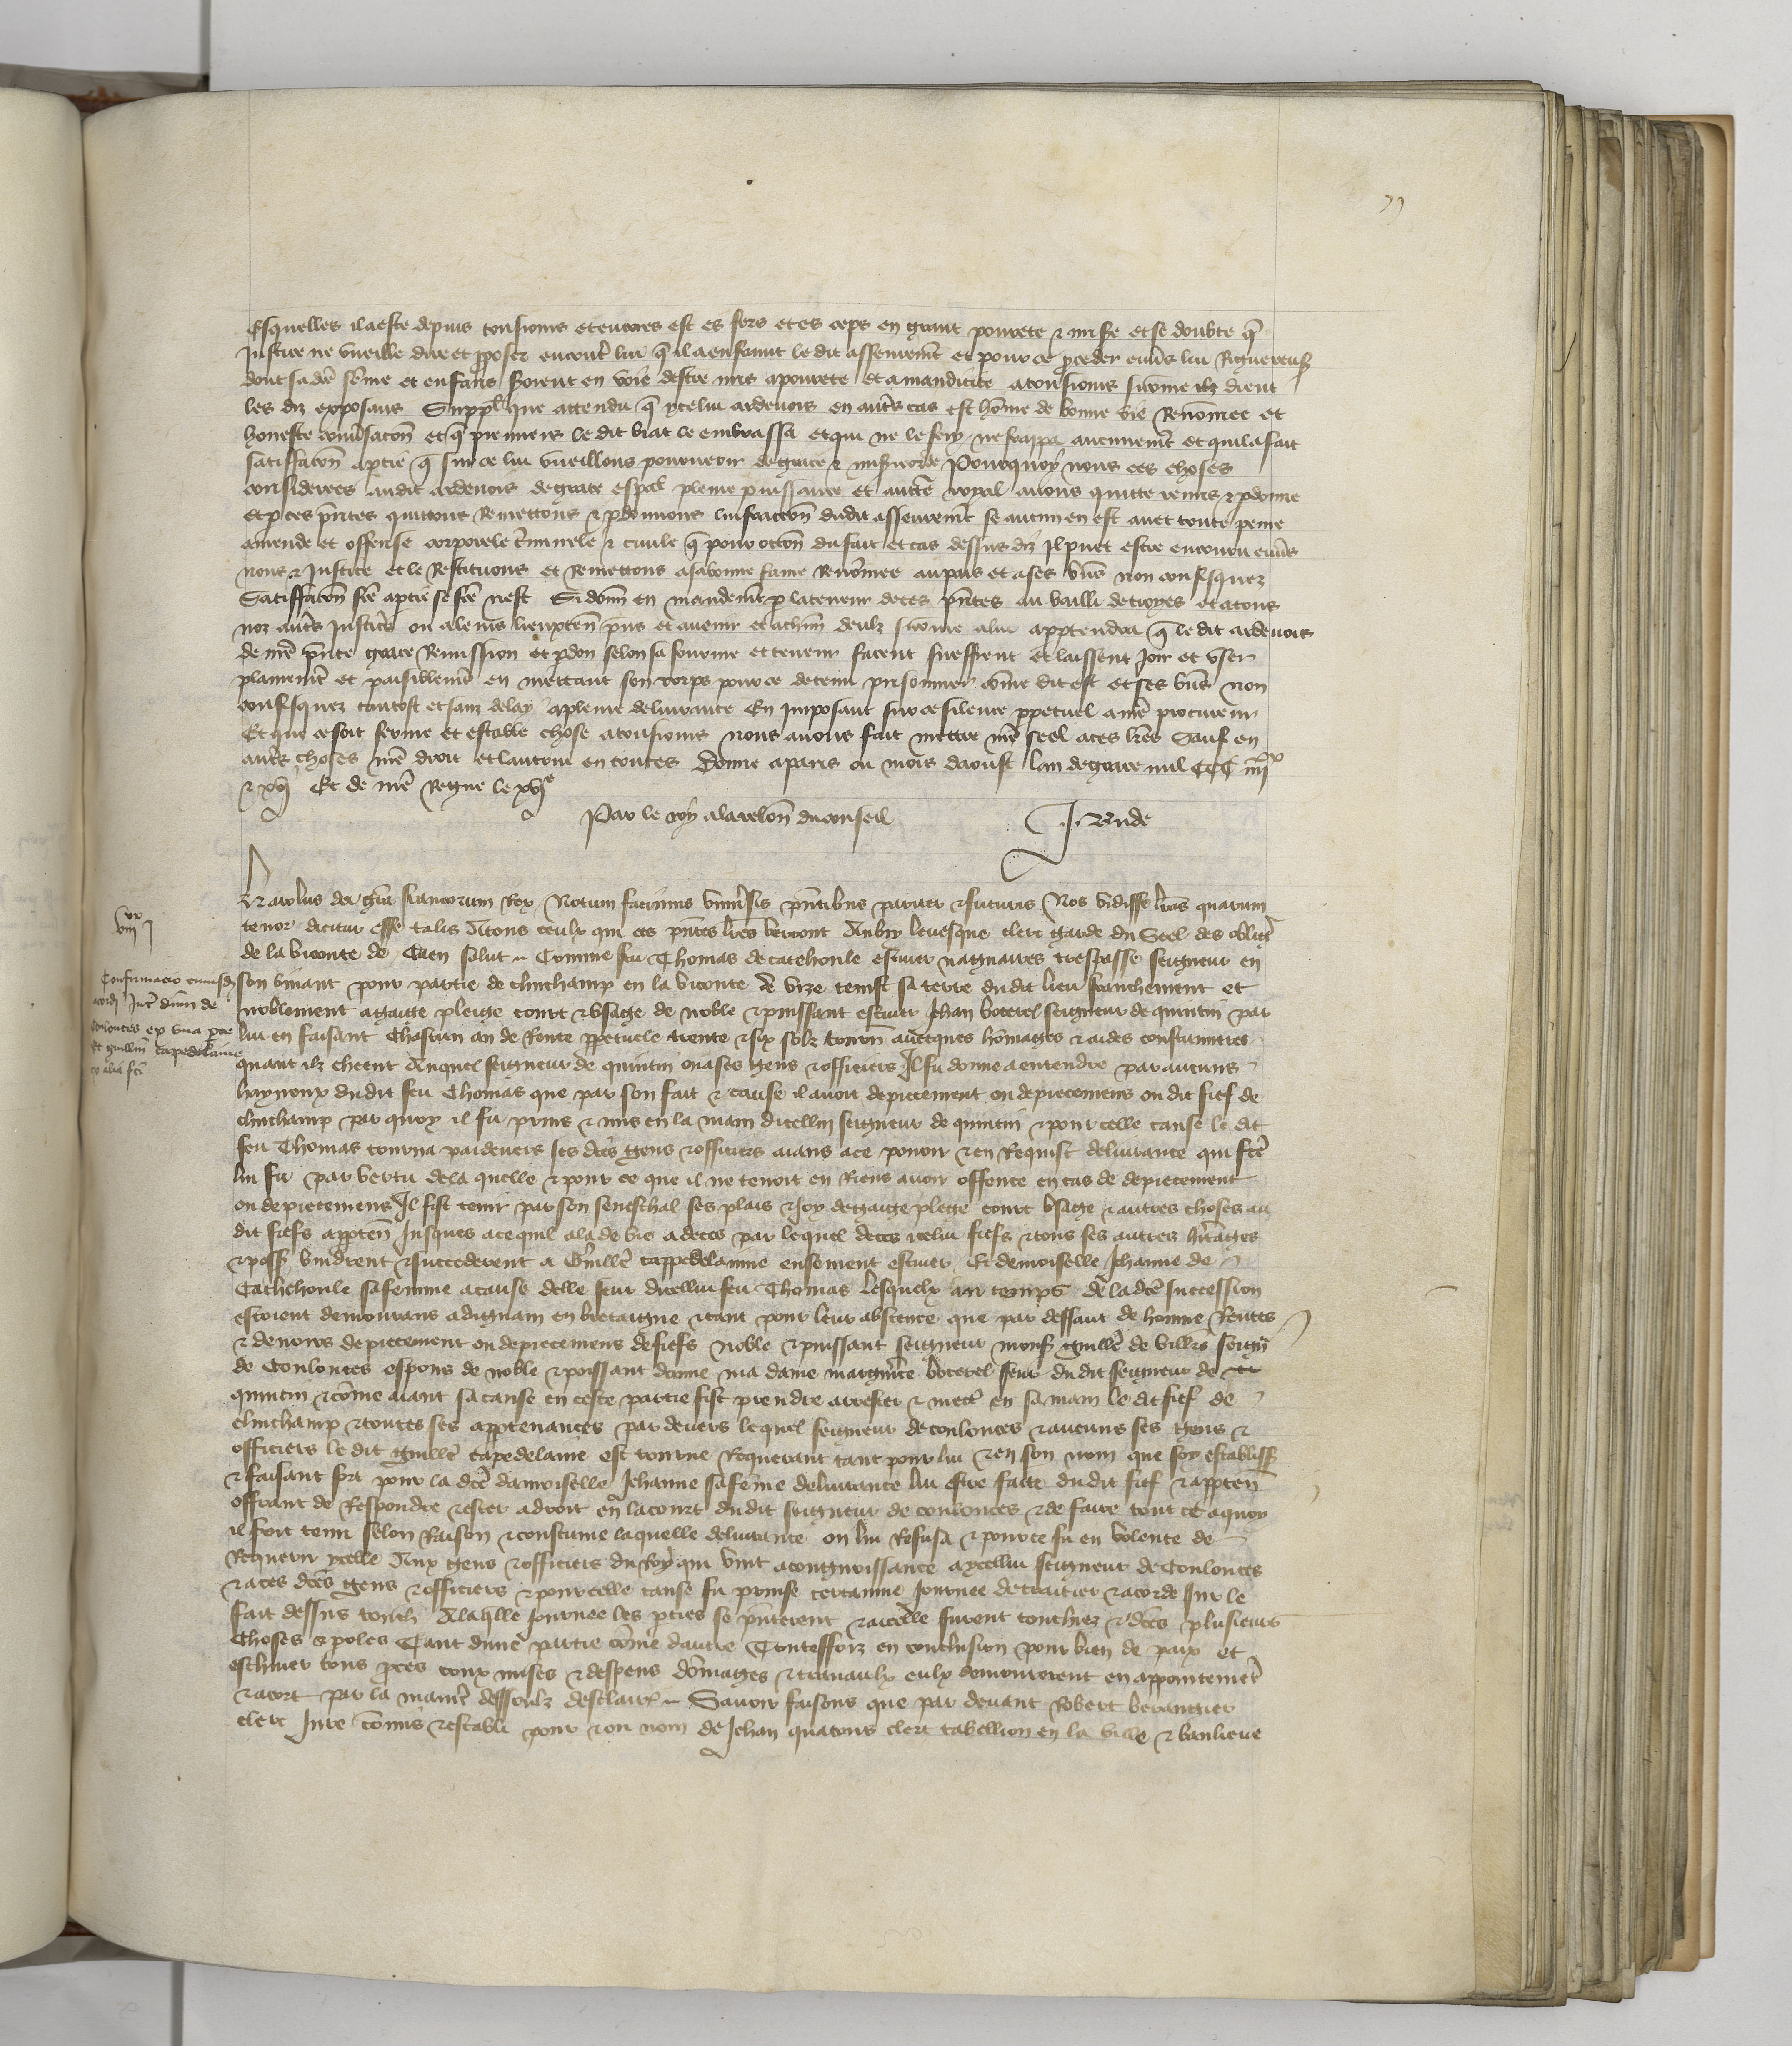 Esquelles il a este depuis tousiours et encores est es fers et es ceps en grant pourete & mis̃e et se doubte q̃
Justice ne vueille dire et p̱poser encontr̃ lui q̃ il a enfraint le dit asseurem̃t et pour ce ꝓceder enũs lui Rigueureus̃
dont sa dc̃e fem̃e et enfans seroient en voie destre mis a pourete et a mandicite a tousiours si com̃e ilz dient
les diz exposans Suppl̃ que attendu q̃ ycelui ardenois en autr̃s cas est hom̃e de bonne vie Renom̃ee et
honeste conũsacõn et q̃ premiers le dit viat le embrassa et qui ne le fery ne frappa aucunem̃t et qui la fait
satiffacõn a p̱tie q̃ sur ce lui vueillons pourueoir de grace & mis̃icorde Pourquoy nous ces choses
considerees audit ardenois de grace esp̃al pleine puissance et auct̃e royal auons quitte remis & p̱donne
et p̱ ces p̃ntes quittons Remettons & p̱donnons linfraccõn dudit asseurem̃t se aucun en est auec toute peine
amende et offense corporele c̃iminele & ciuile q̃ pour occõn du fait et cas dessus diz Il puet estre encouru enũs
nous & Justice et le Restituons et Remettons a sa bonne fame Renom̃ee au pais et a ses biẽs non confisquez
Satiffacõn fc̃e a p̱tie se fc̃e nest Si donñ en mandem̃t p̱ la teneur de ces p̃ntes au bailli de troyes et a tous
noz autr̃s Justic̃s ou a leurs lieuxten̄ p̃ns et auenir et a chũn deulz si com̃e a lui app̱tendra q̃ le dit ardenois
de nr̃e p̃nte grace Remission et p̱don selon sa fourme et teneur facent sueffrent et laissent Joir et vser
plainem̃t et paisiblem̃t en mettant son corps pour ce detenu prisonnier com̃e dit est et ses biẽs non
confisquez tantost et sanz delay a pleine deliurance En Imposant sur ce silence p̱petuel a nr̃e procureur
Et que ce soit ferme et estable chose a tousiours nous auons fait mettre nr̃e seel a ces lr̃es Sauf en
autr̃s choses nr̃e droit et lautrui en toutes Donne a paris ou mois daoust lan de grace mil CCC iiijxx
& xvj Et de nr̃e Regne le xvje
Par le roy a la relacõn du conseil J. Bude
Karolus dei gr̃a francorum Rex Notum facimus vniũsis p̃ntibus pariter & futuris Nos vidisse lr̃as quarum
tenor dicitur esse talis A tous ceulx qui ces p̃ntes lr̃es verront Aubry leuesque clerc garde du Seel des oblig̃
de la viconte de Caen salut Comme feu Thomas de catehoule escuier nagaires trespasse seigneur en
son viuant pour partie de clinchamp en la viconte de vire tenist sa terre du dit lieu franchement et
noblement a gaige pleige court & vsage de noble & puissant escuier Jehan boterel seigneur de quintin par
lui en faisant Chascun an de Rente p̱petuele trente & six solz tourñ auecques hom̃ages & aides coustumiers
quant ilz cheent Auquel seigneur de quintin ou a ses gens & officiers Il fu donne a entendre par aucuns
hayneux du dit feu Thomas que par son fait & cause il auoit depiecement ou depiecemens ou dit fief de
clinchamp par quoy il fu prins & mis en la main dicellui seigneur de quintin & pour celle cause le dit
feu Thomas tourna par deuers ses dc̃s gens & officiers aians a ce pouoir & en Requist deliurance qui fc̃e
lui fu par vertu de la quelle & pour ce que il ne tenoit en Riens auoir offence en cas de depiecement
ou depiecemens Il fist tenir par son seneschal ses plais & Joy de gaige plege court vsage & autres choses au
dit fiefs app̱ten̄ Jusques a ce quil ala de vie a deces par lequel deces icelui fiefs & tous ses autres hr̃itages
& poss̃ vindrent & succederent a Guillẽ tappedelaine ensement escuier Et demoiselle Jehanne de
Catehoule sa femme a cause delle seur dicellui feu Thomas Lesquelx au temps de la dc̃e succession
estoient demourans a dignam en bretaigne & tant pour leur abscence que par deffaut de homme Rentes
& denores depiecement ou depiecemens de fiefs noble & puissant seigneur mons̃ guillẽ de villers seigñ
de Coulonces espous de noble & poissant dame ma dame marguer̃ite boterel seur du dit seigneur de
quintin & com̃e aiant sa cause en ceste partie fist prendre arrester & mectr̃ en sa main le dit fief de
clinchamp & toutes ses app̱tenances par deuers lequel seigneur de coulonces & aucuns ses gens &
officiers le dit guillẽ tapedelaine est tourne Requerant tant pour lui & en son nom que soy establiss̃
& faisant fort pour la dc̃e damoiselle Jehanne sa fem̃e deliurance lui estre faite du dit fief & app̱ten̄
offrant de Respondre & ester a droit en la court du dit seigneur de coulonces & de faire tout ce a quoy
il seroit tenu selon Raison & coustume laquelle deliurance on lui Refusa & pour ce fu en volente de
Requerir ycelle Aux gens & officiers du Roy qui vint a congnoissance a ycellui seigneur de Coulonces
& a ces dc̃es gens & officiers & pour celle cause fu prinse certainne Journee de traitier & acorde sur le
fait dessus touch̃ A laq̃lle Journee les p̱ties se p̃nterent & a icelle furent touchiez & dc̃es plusieurs
choses & poles Tant dune partie com̃e dautre Tontessoiz en conclusion pour bien de paix et
eschiuer tous p̱ces coux mises & despens dom̃ages & trauaulx eulx demourerent en appointem̃t
& acort par la manier̃ dessoulz desclair̃ Sauoir faisons que par deuant Robert berangier
clerc Jure com̃is & estably pour & ou nom de Jehan quatrans clerc tabellion en la ville & banlieue
Confirmacio cuiusd̃
acordi Int̃ dñm de
coulonces ex vna p̱te
Et guillm̃ tapedelaine
ex alia fc̃i